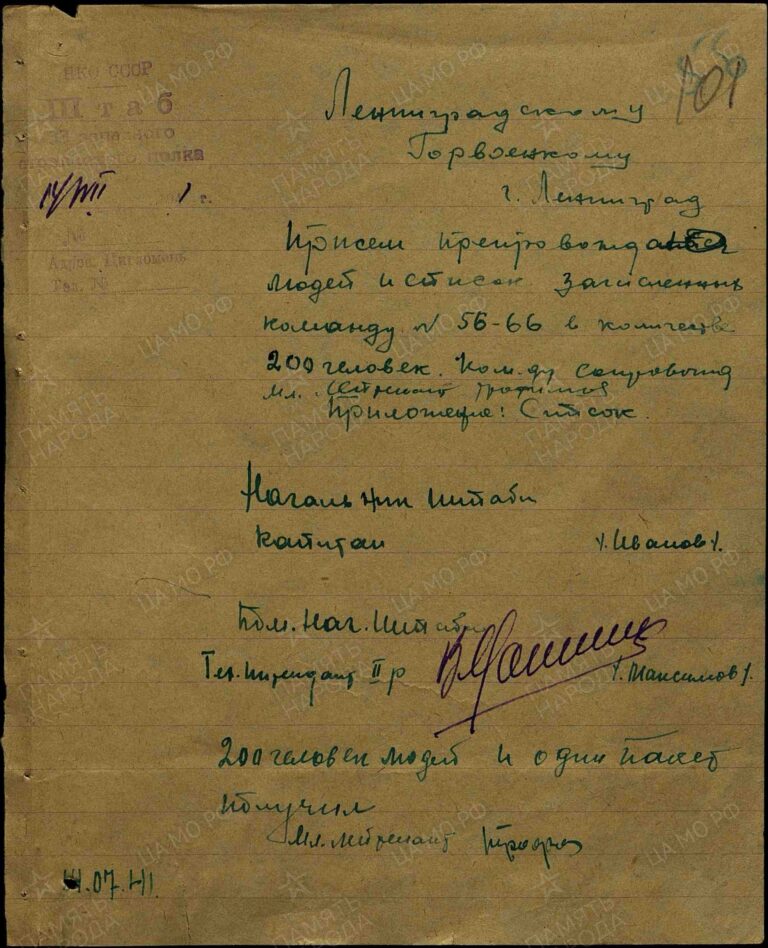 101
НКО СССР
Штаб
запасного
стрелкового полка
14/VII 1 г.
№
Адрес
Тел. №
Ленинградскому
Горвоенкому
г. Ленинград
При сем препровождаются
людей и список зачисленных
команду № 56-66 в количестве
200 человек. Ком-ду сопровожд
мл. лейтенант Трофимов
Приложение: Список.
Начальник штаба
капитан /. Иванов /.
Пом. Нач. Штаба
Тех. интендант II р /. Максимов /.
200 человек людей и один пакет
получил
Мл. лейтенант Трофим
14.07.41.
ПАМЯТЬ НАРОДА
ЦАМО.РФ